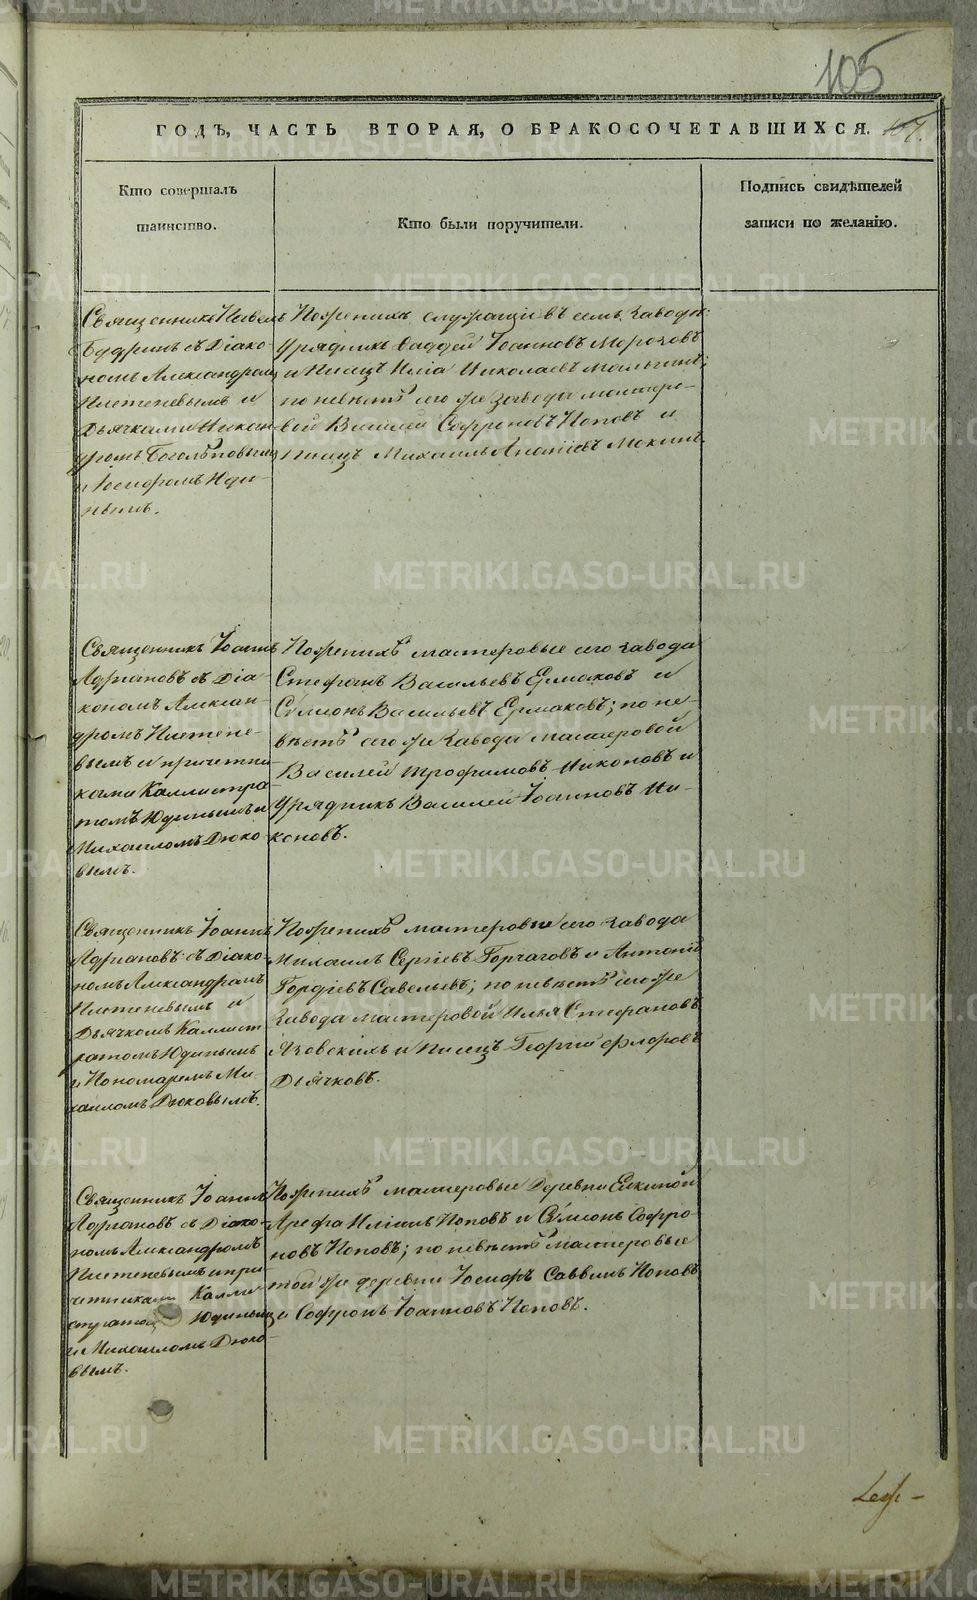 105
ГОДЪ, ЧАСТЬ ВТОРАЯ, О БРАКОСОЧЕТАВШИХСЯ.
Кто совершалъ
таинство.
Кто были поручители.
Подпись свидѣтелей
записи по желанію.
Священникъ Павелъ
Будринъ съ Діако-
номъ Александромъ
Плетеневымъ и
Дьячками Никан
дромъ Боголѣповымъ
и Іосифомъ Юди-
нымъ.
По женихѣ служащіе въ семъ Заводѣ:
Урядникъ Ѳаддей Іоанновъ Морозовъ
и Писецъ Илія Николаевъ
по невѣстѣ сего же Завода мастеро-
вой Василій Софроновъ Поповъ и
Писецъ Михаилъ Мокинъ.
Священникъ Іоаннъ
Адріановъ съ Діа-
кономъ Алексан-
дромъ Плетене-
вымъ и причетни-
ками Каллистра
томъ Юдинымъ и
Михаиломъ Дюко-
вымъ.
По женихѣ мастеровые сего Завода
Стефанъ Васильевъ Ермаковъ и
Сѷмеонъ Васильевъ Ермаковъ; по не-
вѣстѣ сего же Завода мастеровой
Василей Трофимовъ Никоновъ и
Урядникъ Василей Іоанновъ Ни-
коновъ.
Священникъ Іоаннъ
Адріановъ съ Діако-
номъ Александромъ
Плетеневымъ и
Дьячкомъ Каллист
ратомъ Юдинымъ
и Пономаремъ Ми-
хаиломъ Дюковымъ.
По женихѣ мастеровые сего Завода
Михаилъ Сергіевъ Горчаговъ и Антоній
Гордіевъ Савельевъ; по невѣстѣ сего же
Завода мастеровой Илья Стефановъ
Язовскихъ и Писецъ Георгій Флоровъ
Дьячковъ.
Священникъ Іоаннъ
Адріановъ съ Діако-
номъ Александромъ
Плетеневымъ и при
четниками Калли
стратомъ Юдинымъ
и Михаиломъ Дюко-
вымъ.
По женихѣ мастеровые Деревни Елкиной
Арефа Иліинъ Поповъ и Сѷмеонъ Софро-
новъ Поповъ; по невѣстѣ мастеровые
той же деревни Іосифъ Саввинъ Поповъ
и Софронъ Іоанновъ Поповъ.
METRIKI.GASO-URAL.RU